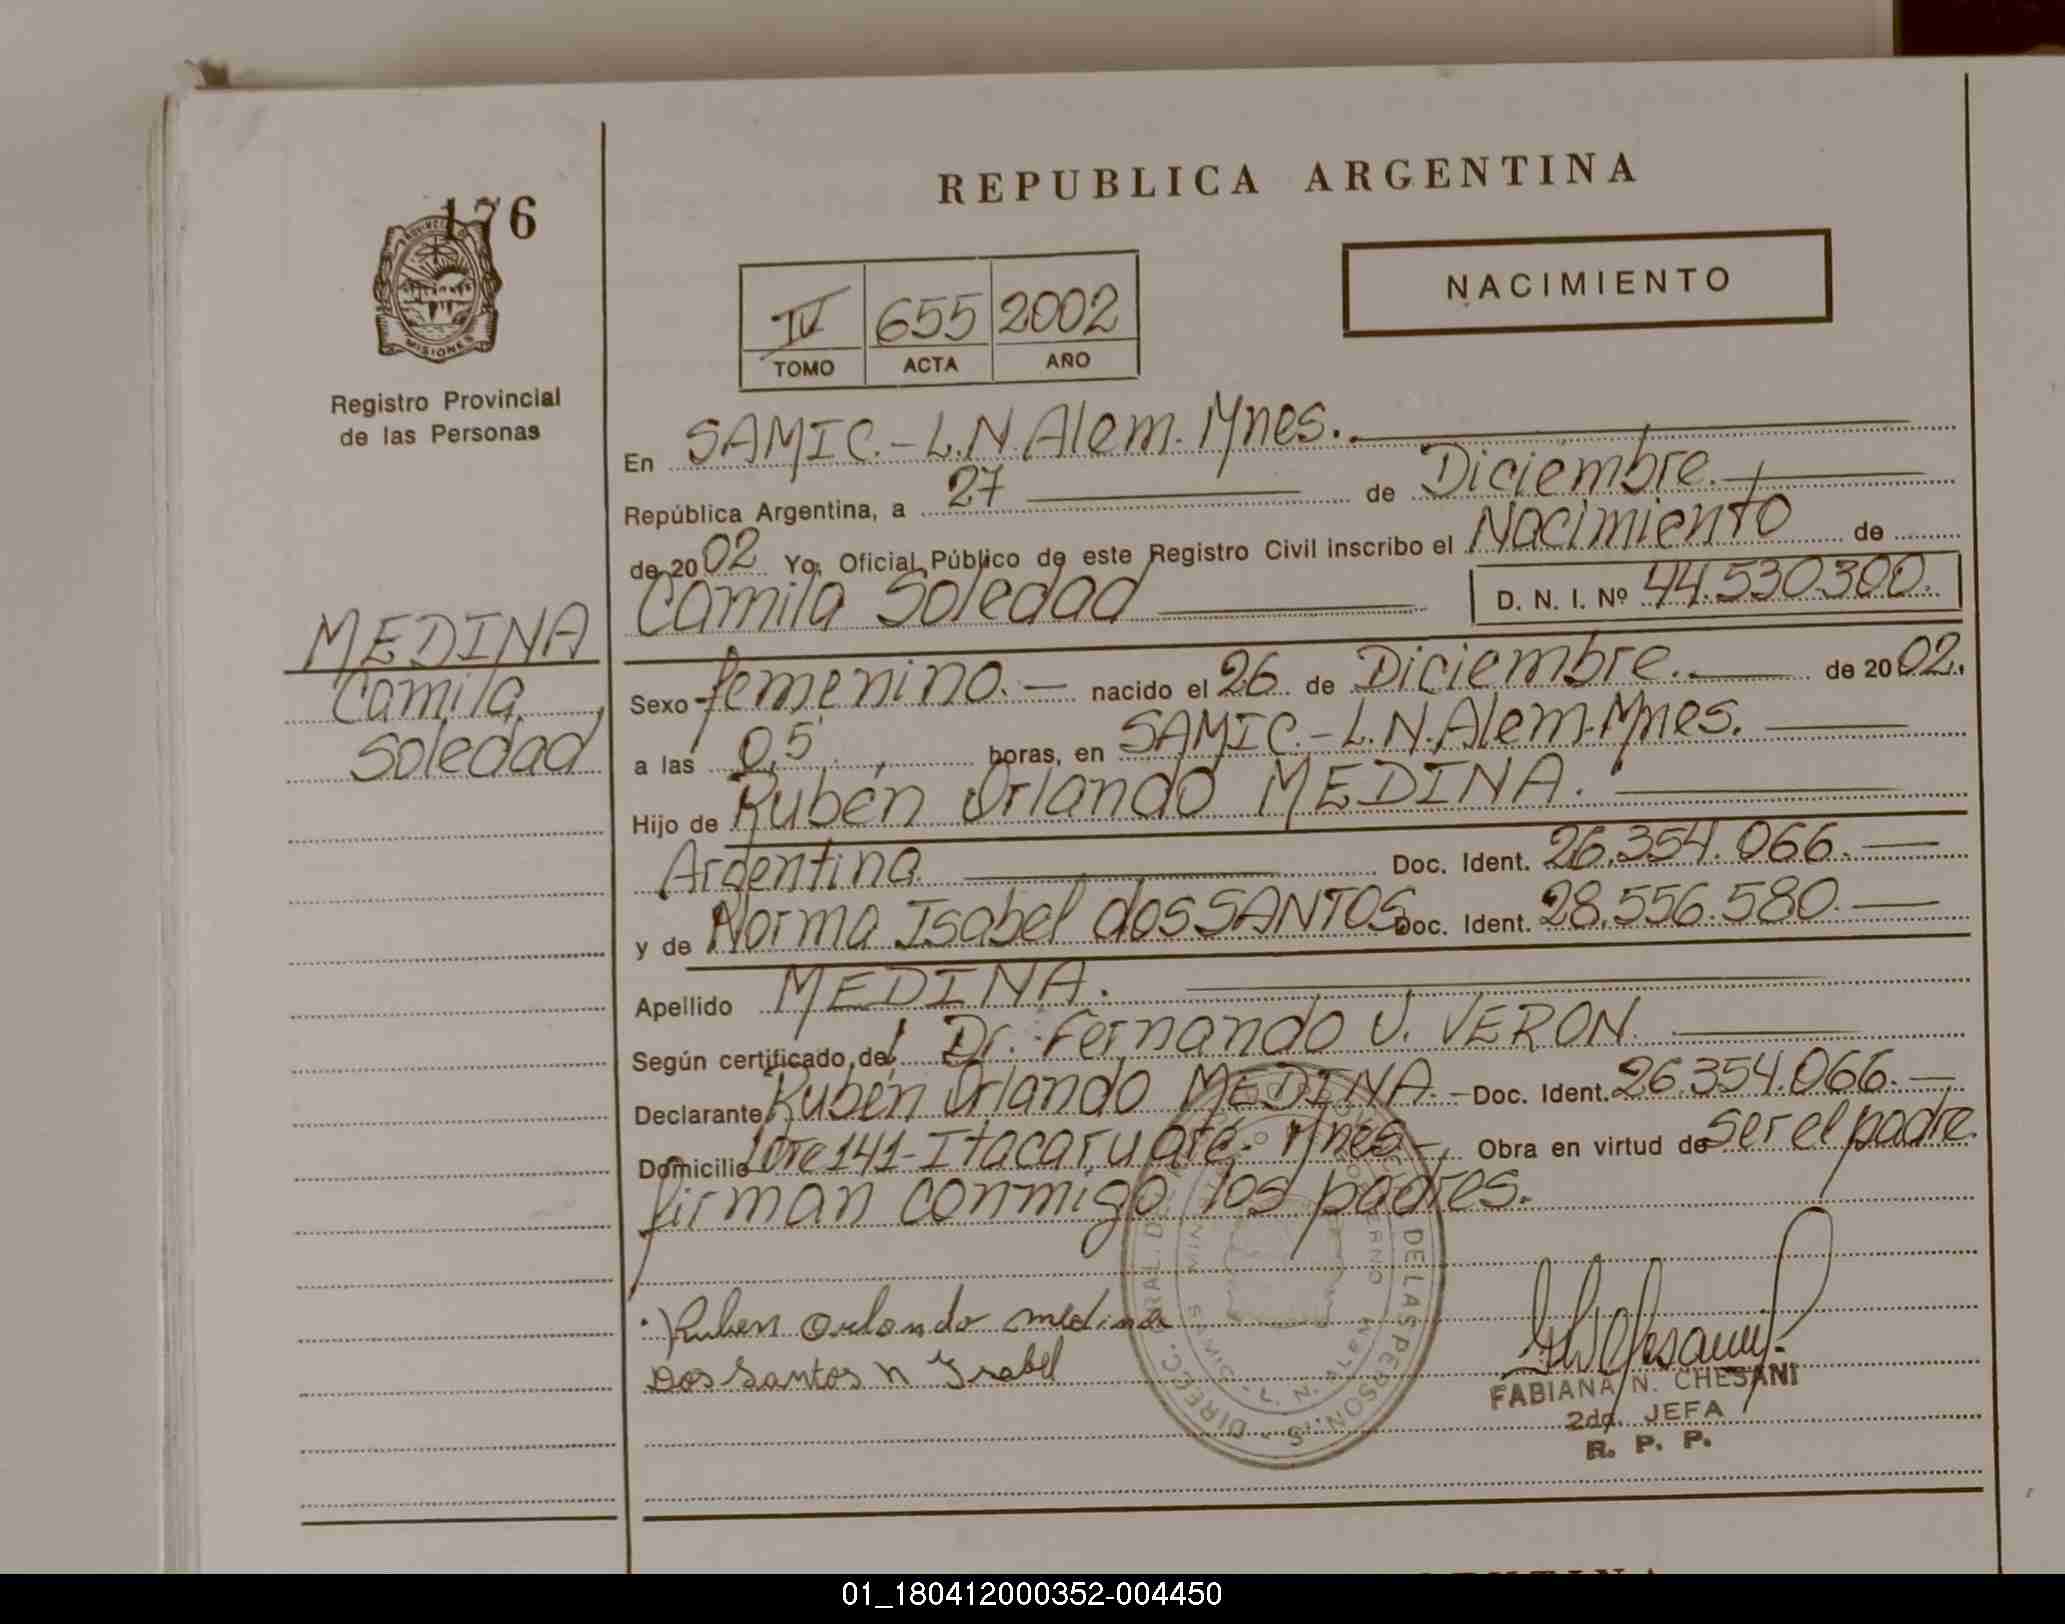 176
PROVINCIA
MISIONES
Registro Provincial
de las Personas
REPUBLICA ARGENTINA
NACIMIENTO
IV 655 2002
TOMO ACTA AÑO
En SAMIC.-L.N.Alem.Mnes.
República Argentina, a 27 de Diciembre.
de 2002 Yo, Oficial Público de este Registro Civil inscribo el Nacimiento de
Camila Soledad D. N. I. Nº 44.530.300.
MEDINA
Camila
Soledad
Sexo femenino.- nacido el 26 de Diciembre. de 2002.
a las 0,5 horas, en SAMIC.-L.N.Alem.Mnes.
Hijo de Rubén Orlando MEDINA.
Argentina Doc. Ident. 26.354.066.-
y de Norma Isabel dos SANTOS Doc. Ident. 28.556.580.-
Apellido MEDINA.
Según certificado del Dr. Fernando J. VERON.
Declarante Rubén Orlando MEDINA.- Doc. Ident. 26.354.066.-
Domicilio lote 141-Itacaruaré-Mnes-, Obra en virtud de ser el padre.
firman conmigo los padres.
Ruben Orlando medina
Dos Santos N Isabel
DE LAS PERSONAS
DIREC. GRAL. DEL
L. N. ALEM
FABIANA N. CHESANI
2da. JEFA
R. P. P.
01_180412000352-004450